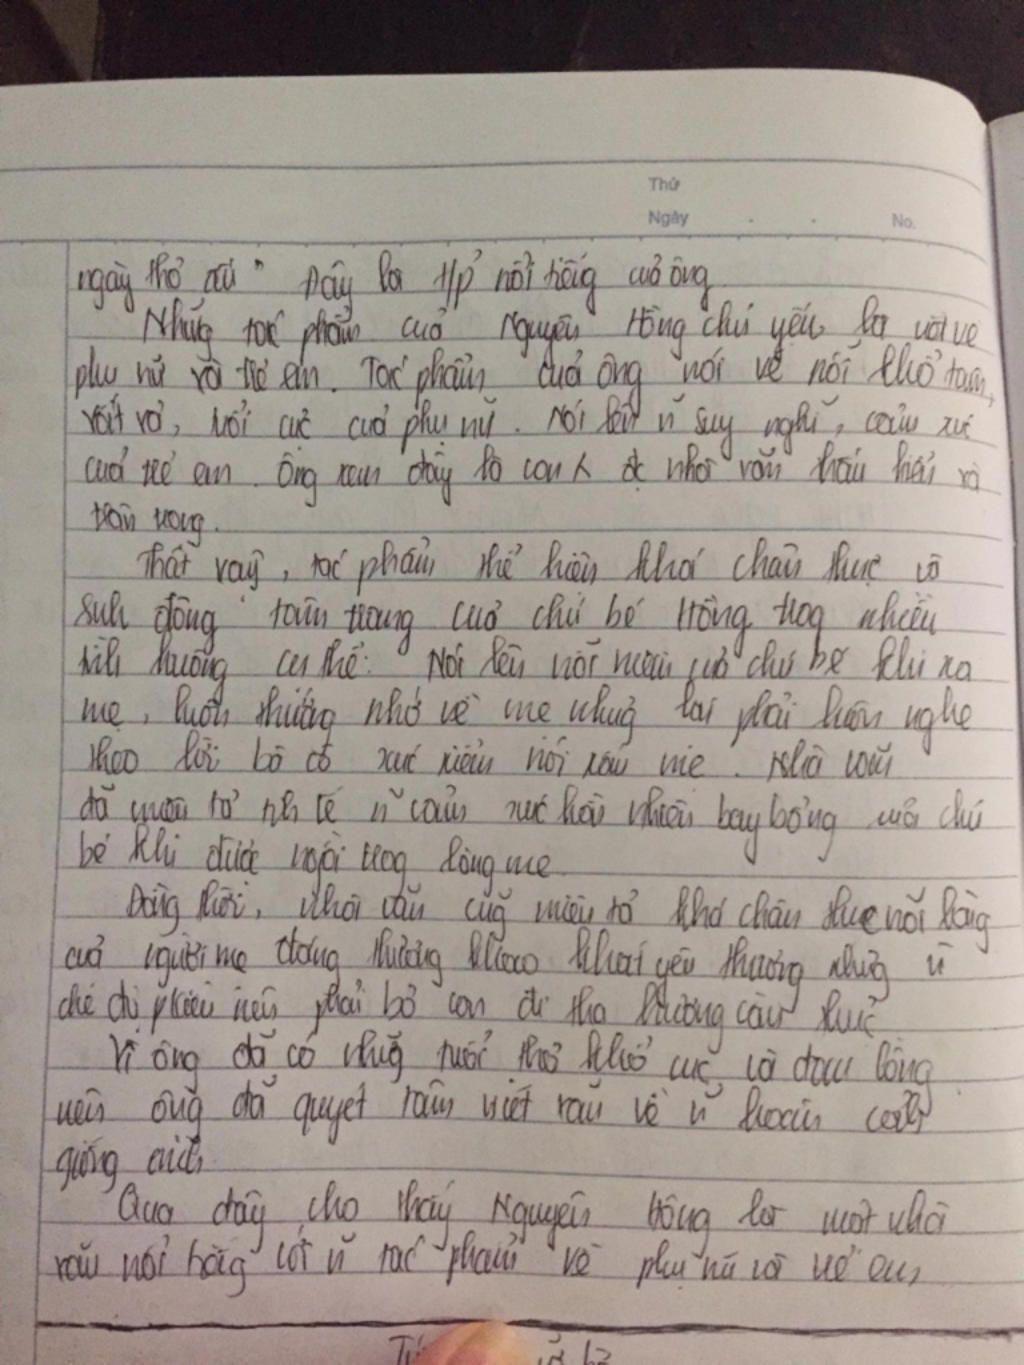 Thứ
Ngày . . No.
ngày thơ ấu" Đây là t/p nổi tiếng của ông
Những tác phẩm của Nguyên Hồng chủ yếu là viết về
phụ nữ và trẻ em. Tác phẩm của ông nói về nỗi khổ tâm,
vất vả, tủi cực của phụ nữ. Nói lên n~ suy nghĩ, cảm xúc
của trẻ em. Ông xem đây là con đc nhà văn thấu hiểu và
trân trọng.
Thật vậy, tác phẩm thể hiện khá chân thực và
sinh động tâm trạng của chú bé Hồng trog nhiều
tình huống cụ thể: Nói lên nỗi của chú bé khi xa
mẹ, luôn thương nhớ về mẹ nhưg lại phải luôn nghe
theo lời bà cô nói xấu mẹ. Nhà văn
đã miêu tả tih tế n~ cảm xúc hồn nhiên bay bổng của chú
bé khi được ngồi trog lòng mẹ
Đồng thời, nhà văn cũg miêu tả khá chân thực nỗi lòng
của người mẹ đáng thương khao khát yêu thương nhưg vì
chế độ phkiến nên phải bỏ con đi tha hương cầu thực
Vì ông đã có nhưg tuổi thơ khổ cực và đau lòng
nên ông đã quyết tâm viết văn về n~ hoàn cảnh
giống mình
Qua đây cho thấy Nguyên Hồng là một nhà
văn nổi tiếng với n~ tác phẩm về phụ nữ và trẻ em